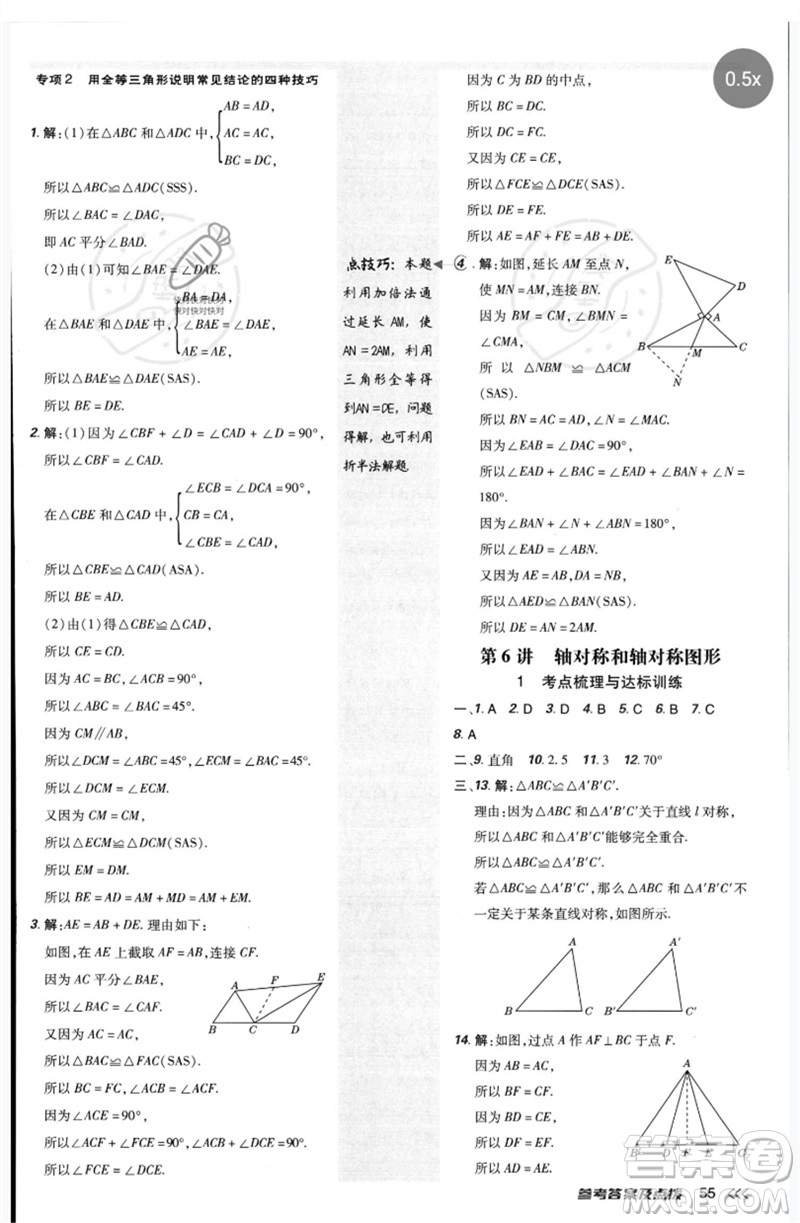 专项2 用全等三角形说明常见结论的四种技巧
1. 解:(1)在△ABC 和△ADC 中,
AB = AD,
AC = AC,
BC = DC,
所以△ABC≌△ADC(SSS).
所以∠BAC = ∠DAC,
即 AC 平分∠BAD.
(2)由(1)可知∠BAE = ∠DAE.
在△BAE 和△DAE 中,
BA = DA,
∠BAE = ∠DAE,
AE = AE,
所以△BAE≌△DAE(SAS).
所以 BE = DE.
2. 解:(1)因为∠CBF + ∠D = ∠CAD + ∠D = 90°,
所以∠CBF = ∠CAD.
在△CBE 和△CAD 中,
∠ECB = ∠DCA = 90°,
CB = CA,
∠CBE = ∠CAD,
所以△CBE≌△CAD(ASA).
所以 BE = AD.
(2)由(1)得△CBE≌△CAD,
所以 CE = CD.
因为∠ACB = 90°,BC = AC,
所以∠ABC = ∠BAC = 45°.
因为 CM∥AB,
所以∠DCM = ∠ABC = 45°,∠ECM = ∠BAC = 45°.
所以∠DCM = ∠ECM.
又因为 CM = CM,
所以△ECM≌△DCM(SAS).
所以 EM = DM.
所以 BE = AD = AM + MD = AM + EM.
3. 解:AE = AB + DE. 理由如下:
如图,在 AE 上截取 AF = AB,连接 CF.
因为 AC 平分∠BAE,
所以∠BAC = ∠CAF.
又因为 AC = AC,
所以△BAC≌△FAC(SAS).
所以 BC = FC,∠ACB = ∠ACF.
因为∠ACE = 90°,
所以∠ACF + ∠FCE = 90°,∠ACB + ∠DCE = 90°.
所以∠FCE = ∠DCE.
A F E
B C D
因为 C 为 BD 的中点,
所以 BC = DC.
所以 DC = FC.
又因为 CE = CE,
所以△FCE≌△DCE(SAS).
所以 DE = FE.
所以 AE = AF + FE = AB + DE.
点技巧:本题
利用加倍法通
过延长 AM,使
AN = 2AM,利用
三角形全等得
到AN = DE,问题
得解,也可利用
折半法解题
4. 解:如图,延长 AM 至点 N,
使 MN = AM,连接 BN.
因为 BM = CM,∠BMN =
∠CMA,
所以△NBM≌△ACM
(SAS).
所以 BN = AC = AD,∠N = ∠MAC.
因为∠EAB = ∠DAC = 90°,
所以∠EAD + ∠BAC =
180°.
因为∠BAN + ∠N + ∠ABN = 180°,
所以∠EAD = ∠ABN.
又因为 AE = AB,
所以△AED≌△BAN(SAS).
所以 DE = AN = 2AM.
E D A B M C N
第 6 讲 轴对称和轴对称图形
1 考点梳理与达标训练
一、1. A 2. D 3. D 4. B 5. B 6. B 7. C
8. A
二、9. 直角 10. 2.5 11. 3 12. 70°
三、13. 解:△ABC≌△A′B′C′.
理由:因为△ABC 和△A′B′C′关于直线 l 对称,
所以△ABC 和△A′B′C′能够完全重合.
所以△ABC≌△A′B′C′.
若△ABC≌△A′B′C′,则△ABC 和△A′B′C′不
一定关于某条直线对称,如图所示.
A A′
B C B′ C′
14. 解:如图,过点 A 作 AF⊥BC 于点 F.
因为 AB = AC,
所以 BF = CF.
因为 AD = AE,
所以 DF = EF.
所以 BD = CE.
A
B D F E C
参考答案及点拨 55
0.5x
快对快对快对
快对快对快对